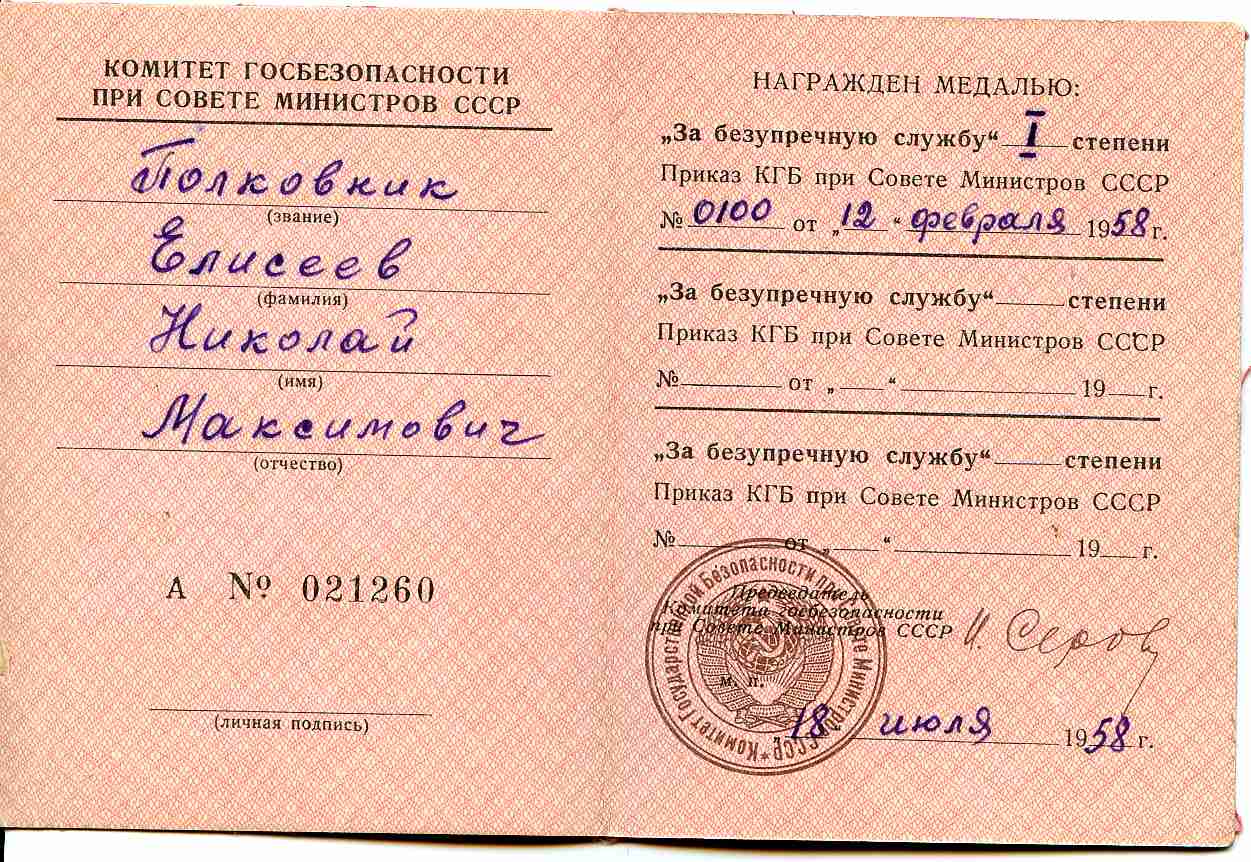 КОМИТЕТ ГОСБЕЗОПАСНОСТИ
ПРИ СОВЕТЕ МИНИСТРОВ СССР
Полковник
(звание)
Елисеев
(фамилия)
Николай
(имя)
Максимович
(отчество)
А № 021260
(личная подпись)
НАГРАЖДЕН МЕДАЛЬЮ:
„За безупречную службу“ I степени
Приказ КГБ при Совете Министров СССР
№ 0100 от „12“ февраля 1958 г.
„За безупречную службу“ степени
Приказ КГБ при Совете Министров СССР
№ от „ “ 19 г.
„За безупречную службу“ степени
Приказ КГБ при Совете Министров СССР
№ от „ “ 19 г.
Председатель
Комитета госбезопасности
при Совете Министров СССР И. Серов
м. п.
18 июля 1958 г.
Комитет Государственной Безопасности при Совете Министров СССР